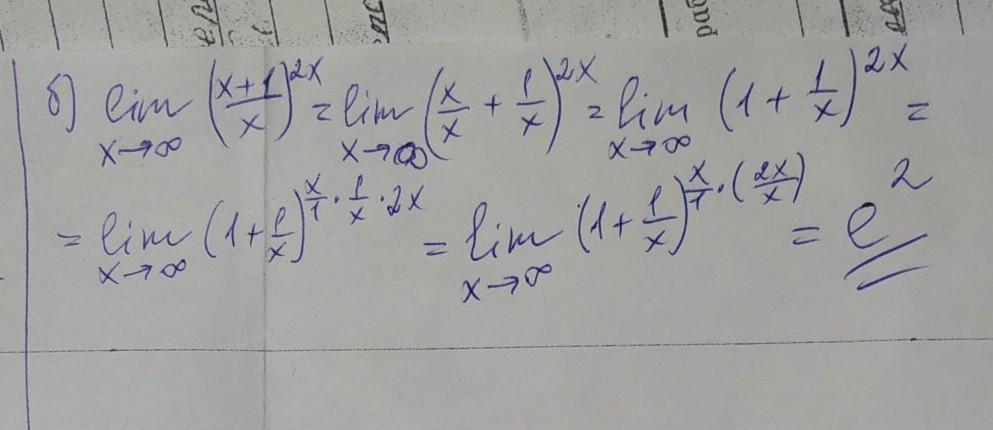 б) lim x→∞ (x+1/x)^2x = lim x→∞ (x/x + 1/x)^2x = lim x→∞ (1 + 1/x)^2x =
= lim x→∞ (1 + 1/x)^x/1 · 1/x · 2x = lim x→∞ (1 + 1/x)^x/1 · (2x/x) = e^2